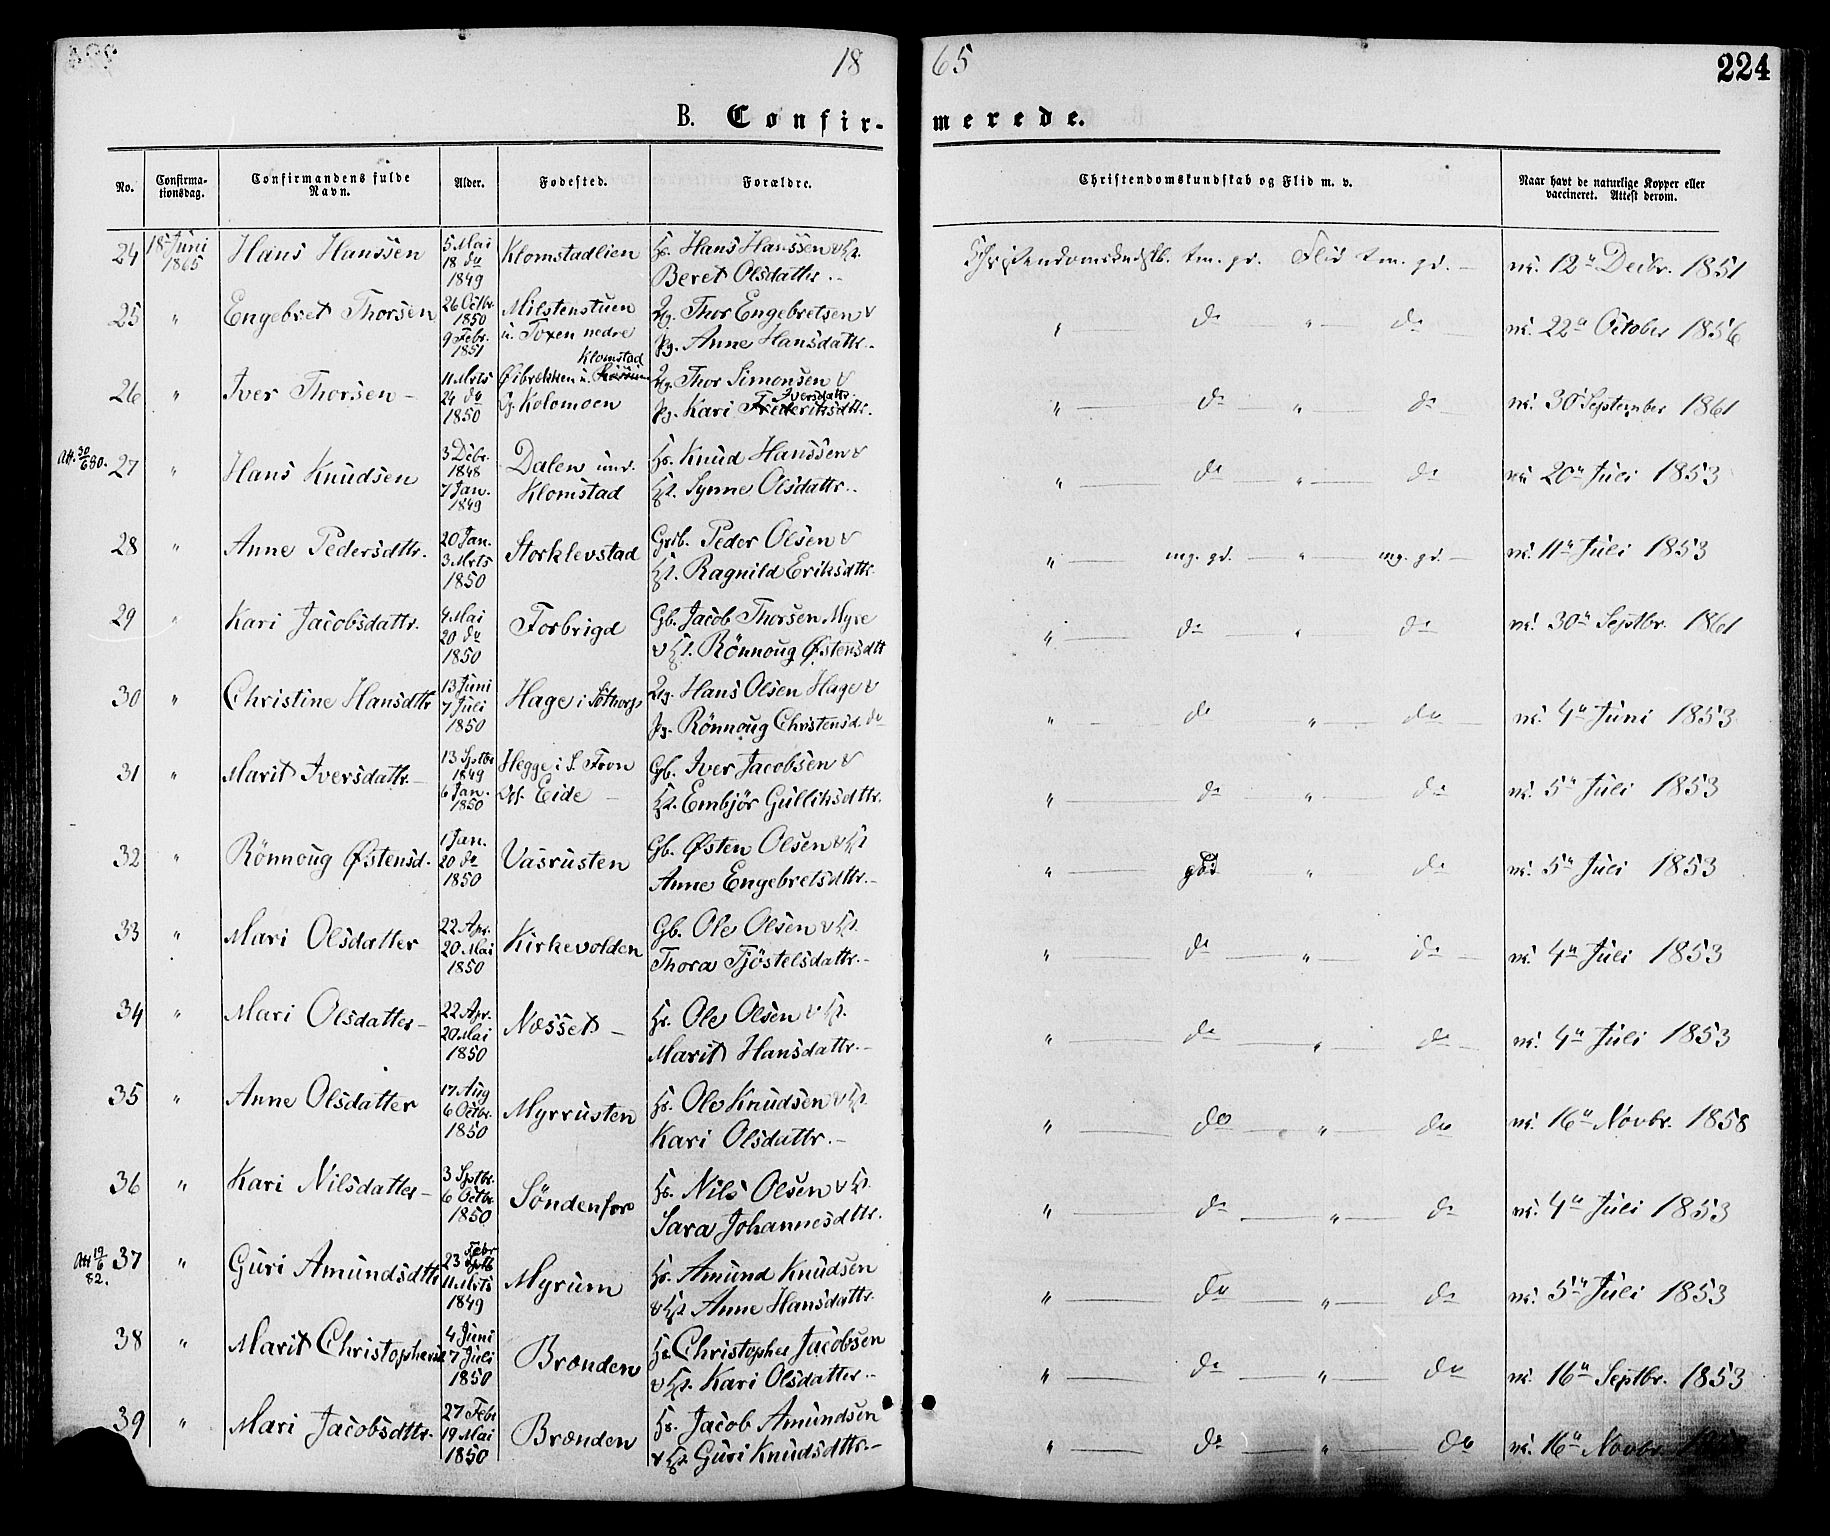 18 65
224
B. Confir- merede.
No.
Confirma-
tionsdag.
Confirmandens fulde
Navn.
Alder.
Fødested.
Forældre.
Christendomskundskab og Flid m. v.
Naar havt de naturlige Kopper eller
vaccineret. Attest derom.
24 18 Juni 1865 Hans Hanssen 5 Mai 18 do 1849 Klomstadlien Hs. Hans Hanssen & Hst. Beret Olsdattr. Christendomskndskb. tm. gd. Flid tm. gd. vk. 12te Decbr. 1851
25 " Engebret Thorsen 26 Octbr. 1850 9 Febr. 1851 Milstenstuen u. Toxen nedre Thor Engebretsen & Pg. Anne Hansdattr. " do " do vk. 22de October 1856
26 " Iver Thorsen 11 Mrts 24 do 1850 Øibrekken u. Klomstad Kolomoen Thor Simonsen & Pg. Kari Iversdattr. Frederiksdttr. " do " do vk. 30 September 1861
Att. 30/6 80. 27 " Hans Knudsen 3 Decbr. 1848 7 Jan. 1849 Dalen und. Klomstad Hs. Knud Hanssen & Hst. Synne Olsdattr. " do " do vk. 20de Juli 1853
28 " Anne Pedersdttr. 20 Jan. 3 Mrts 1850 Storklevstad Grb. Peder Olsen & Hst. Ragnild Eriksdttr. " mg. gd. " mg. gd. vk. 11te Juli 1853
29 " Kari Jacobsdattr. 4 Mai 20 do 1850 Forbrigd Gb. Jacob Thorsen Myre & Hst. Rönnoug Østensdttr " do " do vk. 30de Septbr. 1861
30 " Christine Hansdttr 13 Juni 7 Juli 1850 Hage i Hans Olsen Hage & Pg. Rönnoug Christensd. do " do " do vk. 4de Juni 1853
31 " Marit Iversdattr. 13 Sptbr 1849 6 Jan. 1850 Hegge i S. Fron Eide Gb. Iver Jacobsen & Hst. Embjör Gulliksdttr. " do " do vk. 5te Juli 1853
32 " Rönnoug Østensd. 1 Jan. 20 do 1850 Vasrusten Gb. Østen Olsen & Hst Anne Engebretsdttr. " god " do vk. 5te Juli 1853
33 " Mari Olsdatter 22 Apr. 20 Mai 1850 Kirkevolden Gb. Ole Olsen & Hst. Thora Tjöstelsdattr. " do " do vk. 4de Juli 1853
34 " Mari Olsdatter 22 Apr. 20 Mai 1850 Næsset Hs. Ole Olsen & Hst. Marit Hansdattr. " do " do vk. 4de Juli 1853
35 " Anne Olsdatter 17 Aug 6 Octbr. 1850 Myrrusten Hs. Ole Knudsen & Hst. Kari Olsdattr. " do " do vk. 16de Novbr. 1858
36 " Kari Nilsdatter 3 Sptbr. 6 Octbr 1850 Söndenfor Hs. Nils Olsen & Hst. Sara Johannesdttr. " do " do vk. 4de Juli 1853
Att 19/6 82. 37 " Guri Amundsdttr 23 Febr 11 Mrts 1849 Myrum Hs. Amund Knudsen & Hst. Anne Hansdattr. " do " do vk. 5te Juli 1853
38 " Marit Christophersd 4 Juni 7 Juli 1850 Brænden Hs. Christopher Jacobsen & Hst. Kari Olsdatter " do " do vk. 16de Septbr. 1853
39 " Mari Jacobsdttr. 27 Febr 19 Mai 1850 Brænden Hs. Jacob Amundsen & Hst. Guri Knudsdttr. " do " do vk. 16de Novbr.